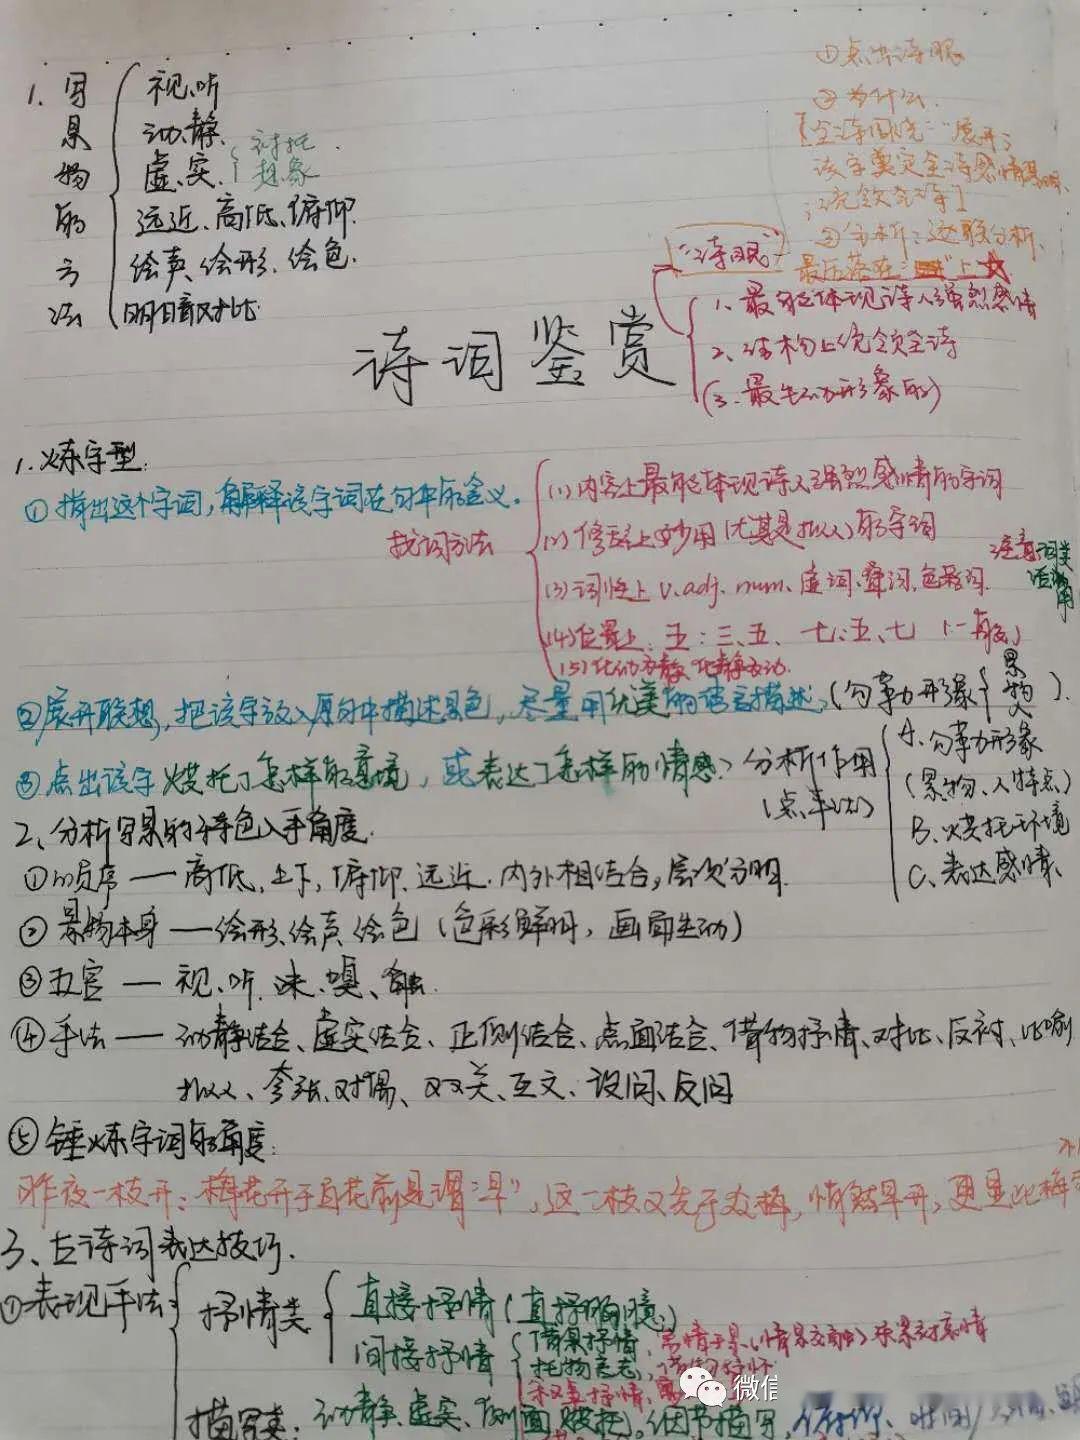 1. 写景物的方法
视、听
动、静
虚、实
衬托
想象
远近、高低、俯仰
绘声、绘形、绘色
明暗对比
①点出诗眼
②为什么
【全诗围绕“”展开,
该字奠定全诗感情基调,
统领全诗】
③分析:逐联分析,
最后落在“”上☆
“诗眼”
1、最能体现诗人强烈感情
2、结构上统领全诗
(3、最生动形象的)
诗词鉴赏
1.炼字型:
①指出这个字词,解释该字词在句中的含义。
找词方法
(1)内容上最能体现诗人强烈感情的字词
(2)修辞上妙用(尤其是拟人)的字词
(3)词性上 v、adj、num、虚词、叠词、色彩词
注意词类活用
(4)位置上:五:三、五、七:五、七(一般)
(5)化动为静 化静为动
②展开联想,把该字放入原句中描述景色,尽量用优美的语言描述,(勾勒形象{景物人)
③点出该字烘托了怎样的意境,或表达了怎样的情感?分析作用
(点手法)
A、勾勒形象
(景物、人特点)
B、烘托环境
C、表达感情
2、分析写景的特色入手角度
①顺序——高低、上下、俯仰、远近、内外相结合,层次分明
②景物本身——绘形、绘声、绘色(色彩鲜明,画面生动)
③五官——视、听、味、嗅、触
④手法——动静结合、虚实结合、正侧结合、点面结合、借物抒情、对比、反衬、比喻
拟人、夸张、对偶、双关、互文、设问、反问
⑤锤炼字词的角度:
昨夜一枝开:梅花开于百花前是谓“早”,这一枝又先于众梅,悄然早开,更显此梅
3、古诗词表达技巧
①表现手法
抒情类
直接抒情(直抒胸臆)
间接抒情
借景抒情,寓情于景(情景交融)
托物言志
描写类:动静、虚实、侧面烘托、细节描写、俯仰、
微信